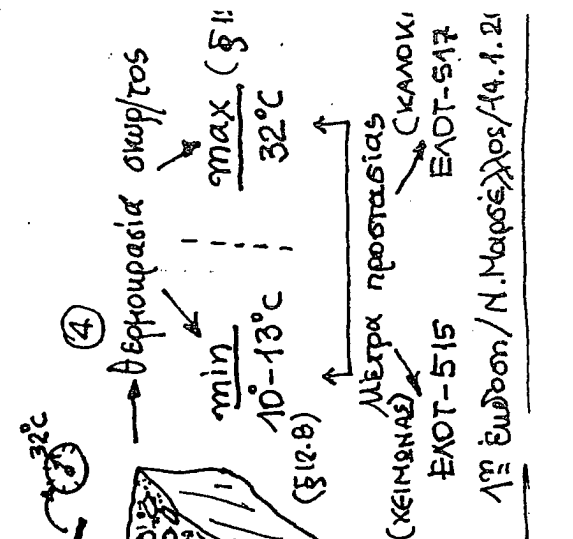 32°C
④
θερμοκρασία σκυρ/τος
min
10°-13°C
(§12.8)
max (§
32°C
Μέτρα προστασίας
(ΧΕΙΜΩΝΑΣ)
ΕΛΟΤ-515
ΕΛΟΤ-517
1η Έκδοση/Ν.Μαρσέλλος/14.1.